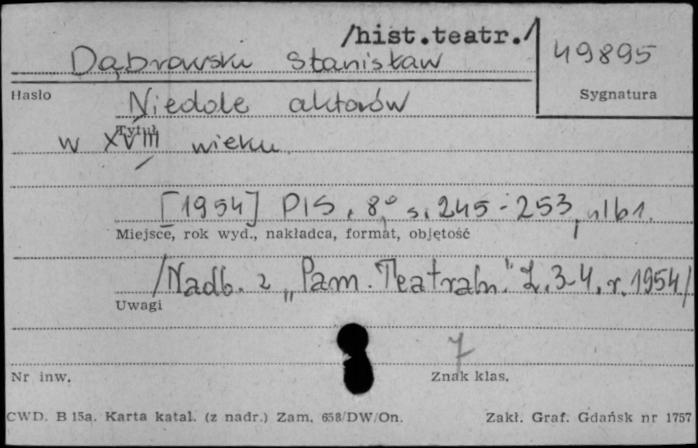 /hist.teatr./
Dąbrowski Stanisław
49895
Hasło
Sygnatura
Niedole aktorów
Tytuł
w XVIII wieku.
[1954] PIS, 8° s. 245-253, nlb 1.
Miejsce, rok wyd., nakładca, format, objętość
/Nadb. z "Pam. Teatraln." Z. 3-4, r. 1954/
Uwagi
7
Nr inw.
Znak klas.
CWD. B 15a. Karta katal. (z nadr.) Zam. 658/DW/On.
Zakł. Graf. Gdańsk nr 1757